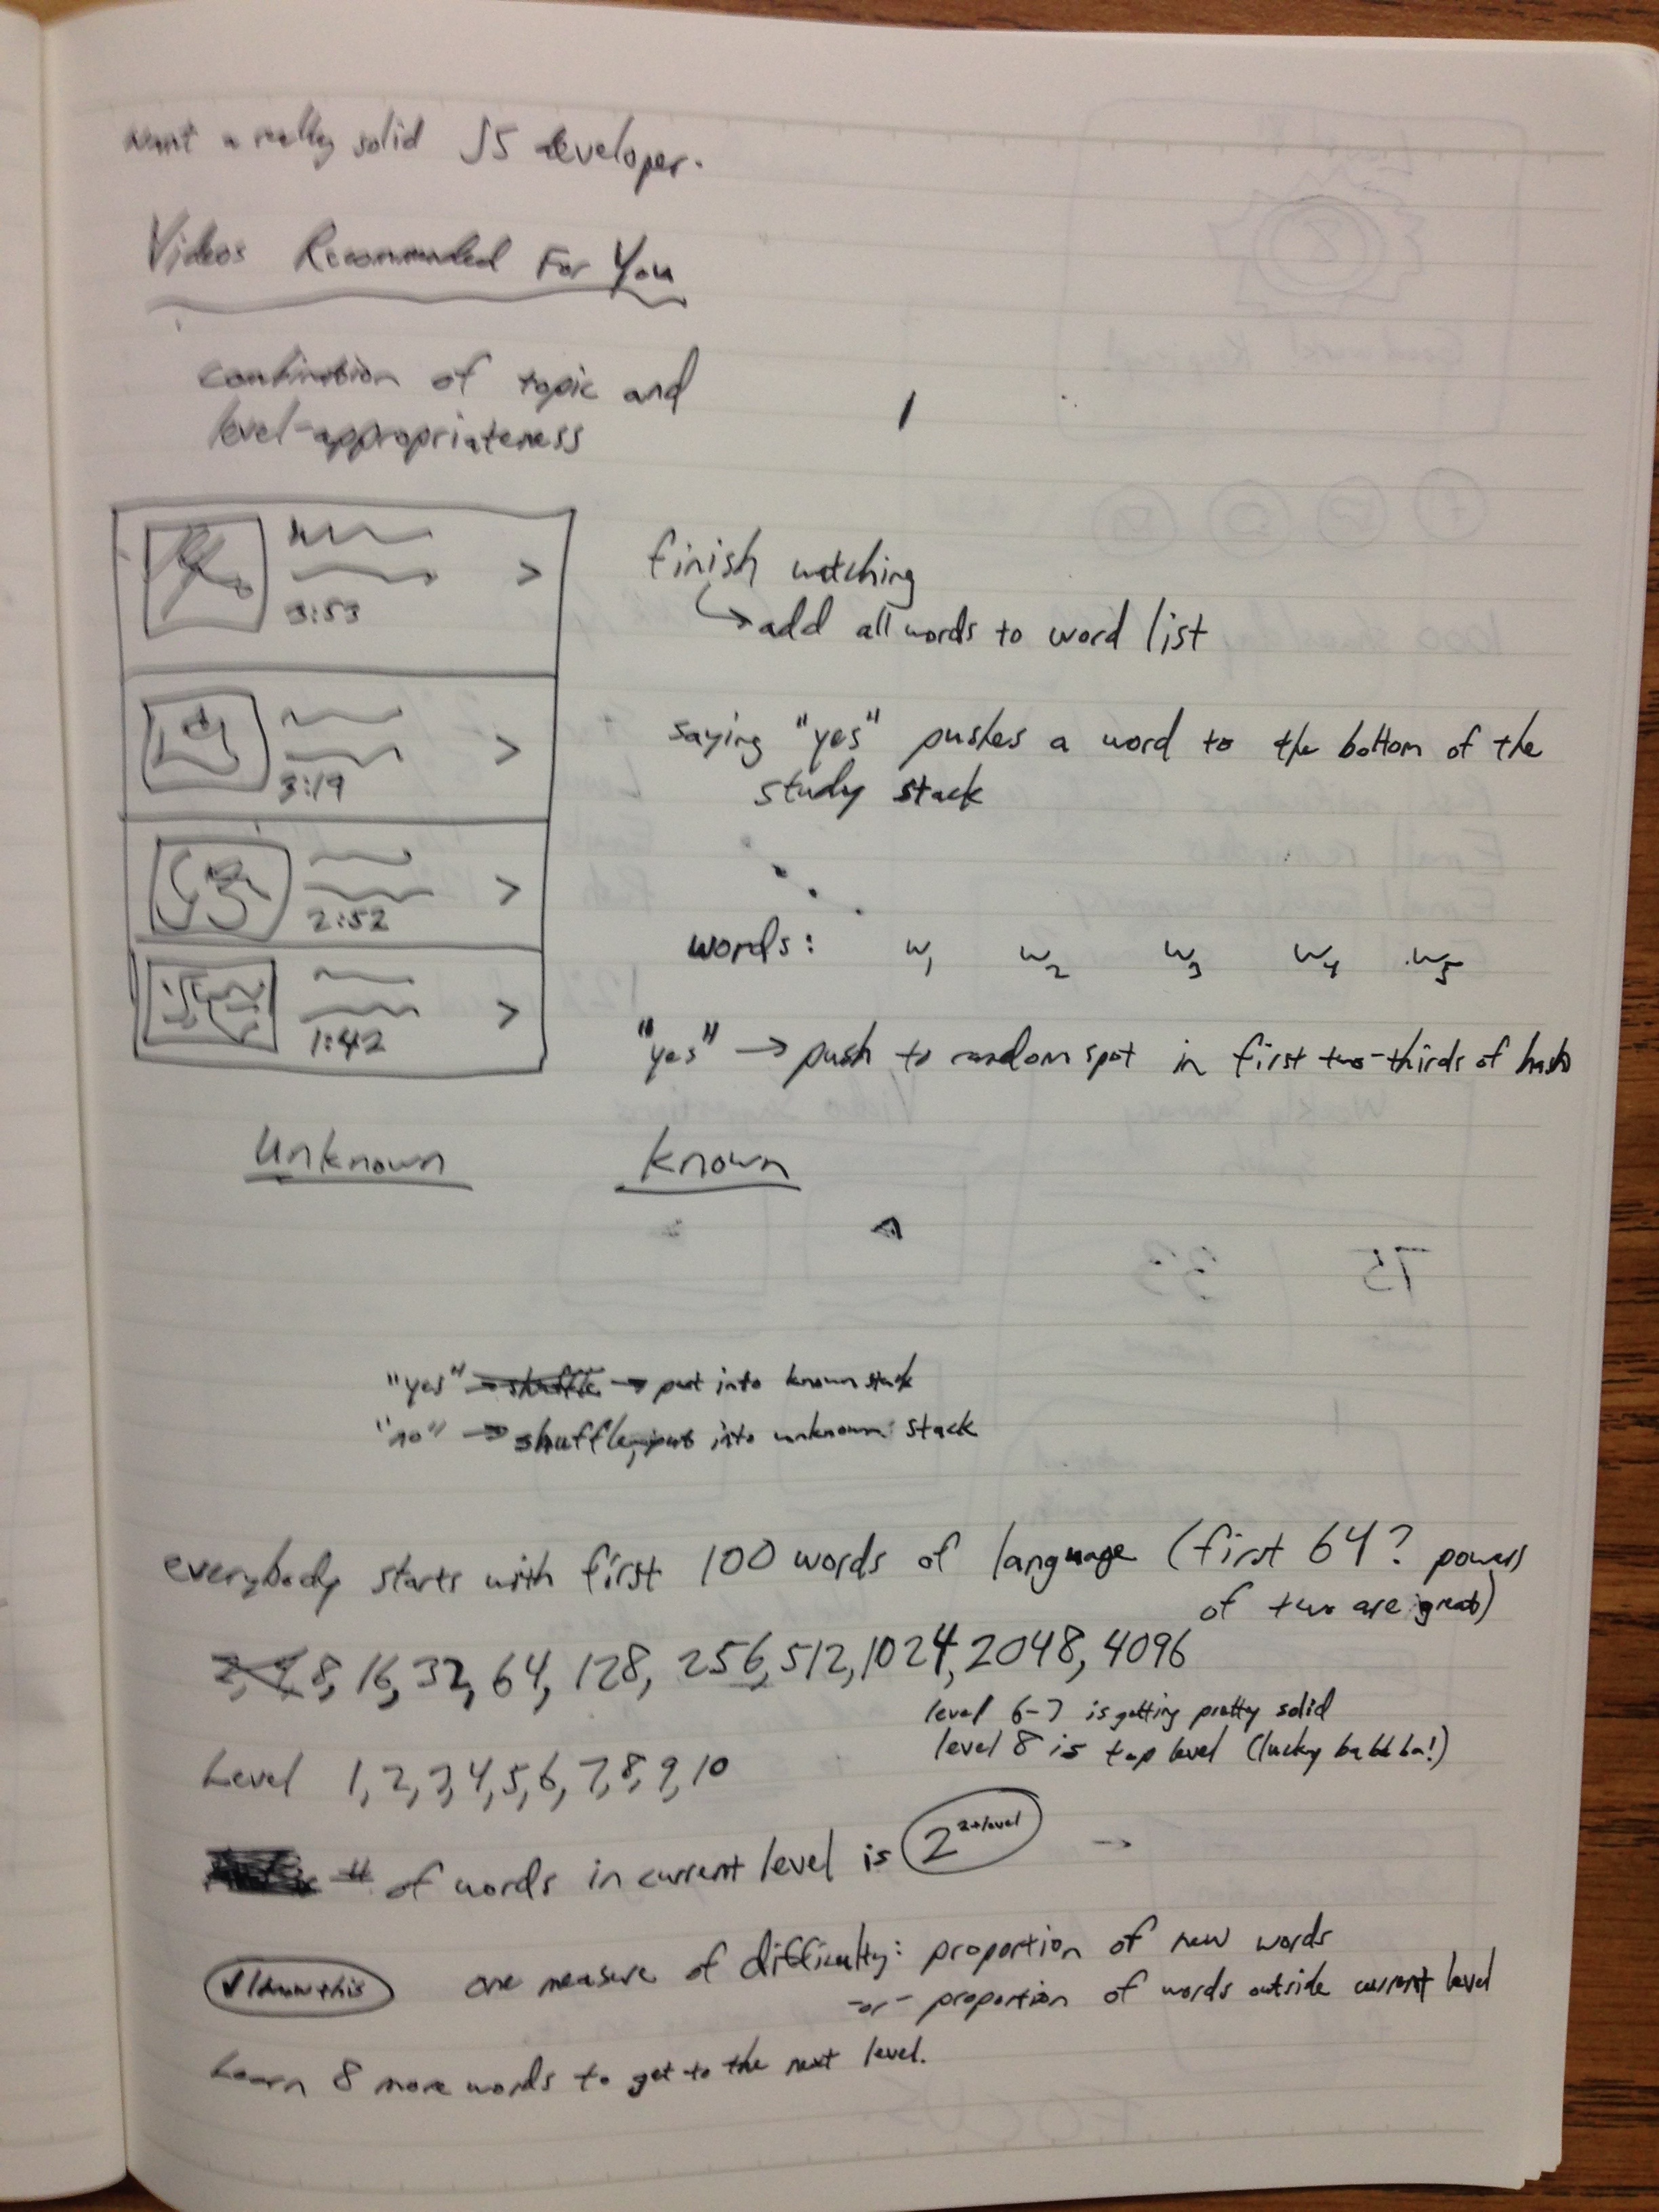 want a really solid JS developer.
Videos Recommended For You
combination of topic and
level-appropriateness
3:53
3:19
2:52
1:42
finish watching
→ add all words to word list
saying "yes" pushes a word to the bottom of the
study stack
words: w1 w2 w3 w4 w5
"yes" → push to random spot in first two-thirds of
Unknown known
"yes" → shuffle → put into known stack
"no" → shuffle, put into unknown stack
everybody starts with first 100 words of language (first 64? powers
of two are great)
2, 4, 8, 16, 32, 64, 128, 256, 512, 1024, 2048, 4096
level 6-7 is getting pretty solid
level 8 is top level (lucky
Level 1, 2, 3, 4, 5, 6, 7, 8, 9, 10
# of words in current level is 2^2+level →
✓ I know this
one measure of difficulty: proportion of new words
-or- proportion of words outside current level
Learn 8 more words to get to the next level.